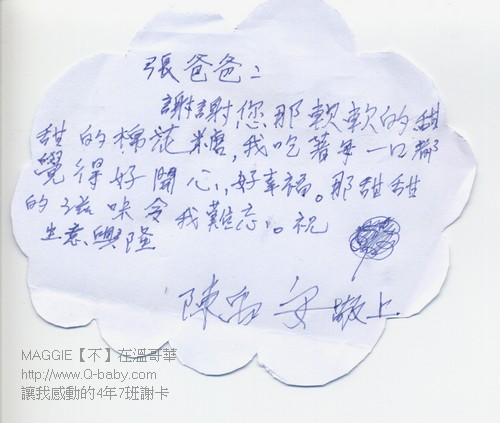 張爸爸：
謝謝您那軟軟的甜
甜的棉花糖，我吃著每一口都
覺得好開心、好幸福。那甜甜
的滋味令我難忘。祝
生意興隆
陳 安 敬上
MAGGIE【不】在溫哥華
http://www.Q-baby.com
讓我感動的4年7班謝卡